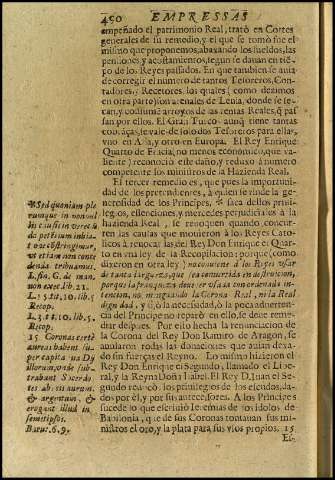 450 EMPRESSAS
empeñado el patrimonio Real, trató en Cortes
generales de su remedio, y el que se tomó fue el
mismo que proponemos, abaxando los sueldos, las
pensiones y acostamientos, segun se davan en tiẽ-
po de los Reyes passados. En que tambien se avia
de corregir el numero de tantos Tesoreros, Con-
tadores, y Recetores, los quales (como dezimos
en otra parte) son arenales de donde se se-
can, y cõsumẽ arroyos de las rentas Reales, q̃ pas-
san por ellos. El Gran Turco aunq̃ tiene tantas
se vale de solo dos Tesoreros para ellas,
vno en Asia, y otro en Europa. El Rey Enrique
Quarto de Francia (no menos economico, que va-
liente) reconoció este daño, y reduxo á numero
competente los ministros de la Hazienda Real.
El tercer remedio es, que pues la importunidad
de los pretendientes, á quien se rinde la ge-
nerosidad de los Principes, * saca dellos privi-
legios, essenciones, y mercedes perjudiciales á la
hazienda Real, se revoquen quando concur-
ren las causas que movieron á los Reyes Catoli-
cos á revocar las del Rey Don Enrique el Quar-
to en vna ley de la Recopilacion: porque (como
dixeron en otra ley) no conviene á los Reyes usar
de tanta largueza, que sea convertida en destruicion,
porque la franqueza deve ser usada con ordenada in-
tencion, no menguando la Corona Real, ni la Real
dignidad, y si, ó la necessidad, ó la poca adverten-
cia del Principe no reparó en ello, se deve reme-
diar despues. Por ello hecha la renunciacion de
la Corona del Rey Don Ramiro de Aragon, se
anularon todas las donaciones que avian dexa-
do sin fuerças el Reyno. Lo mismo hizieron el
Rey Don Enrique el Segundo, llamado el Libe-
ral, y la Reyna Doña Isabel. El Rey D. Juan el Se-
gundo revocó los privilegios de los escusados, da-
dos por él, y por sus antecessores. A los Principes
sucede lo que escrivió Ieremias de los idolos de
Babilonia, que de sus Coronas tomavan sus mi-
nistros el oro, y la plata para sus vsos propios. 15
Es-
* Sed quoniam ple
rumque in nonnul
lis causis in verecũ
da petentium inhia-
tione constringimur,
vt etiam non conce
denda tribuamus.
l. fin. C. de
non exct. lib. 11.
L. 15. tit. 10. lib. 5
Recop.
L. 3. tit. 10. lib. 5.
Recop.
15 Coronas certè
aureas habent su-
per capita sua Dij
illorum, vnde sub-
trahunt Sacerdo-
tes ab eis aurum,
& argentum, &
erogant illud in
semetipsos.
Baruc. 6. 9.